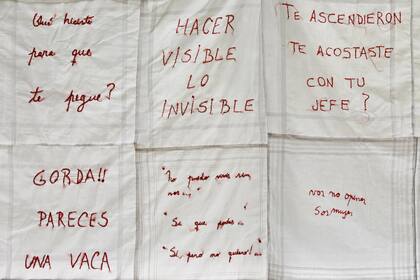 Qué hiciste
para que
te pegue?
HACER
VISIBLE
LO
INVISIBLE
TE ASCENDIERON
TE ACOSTASTE
CON TU
JEFE?
GORDA!!
PARECES
UNA VACA
"No puedo vivir sin
vos..."
"Se que podes
"Si, pero no quiero!
vos no opines
Sos mujer